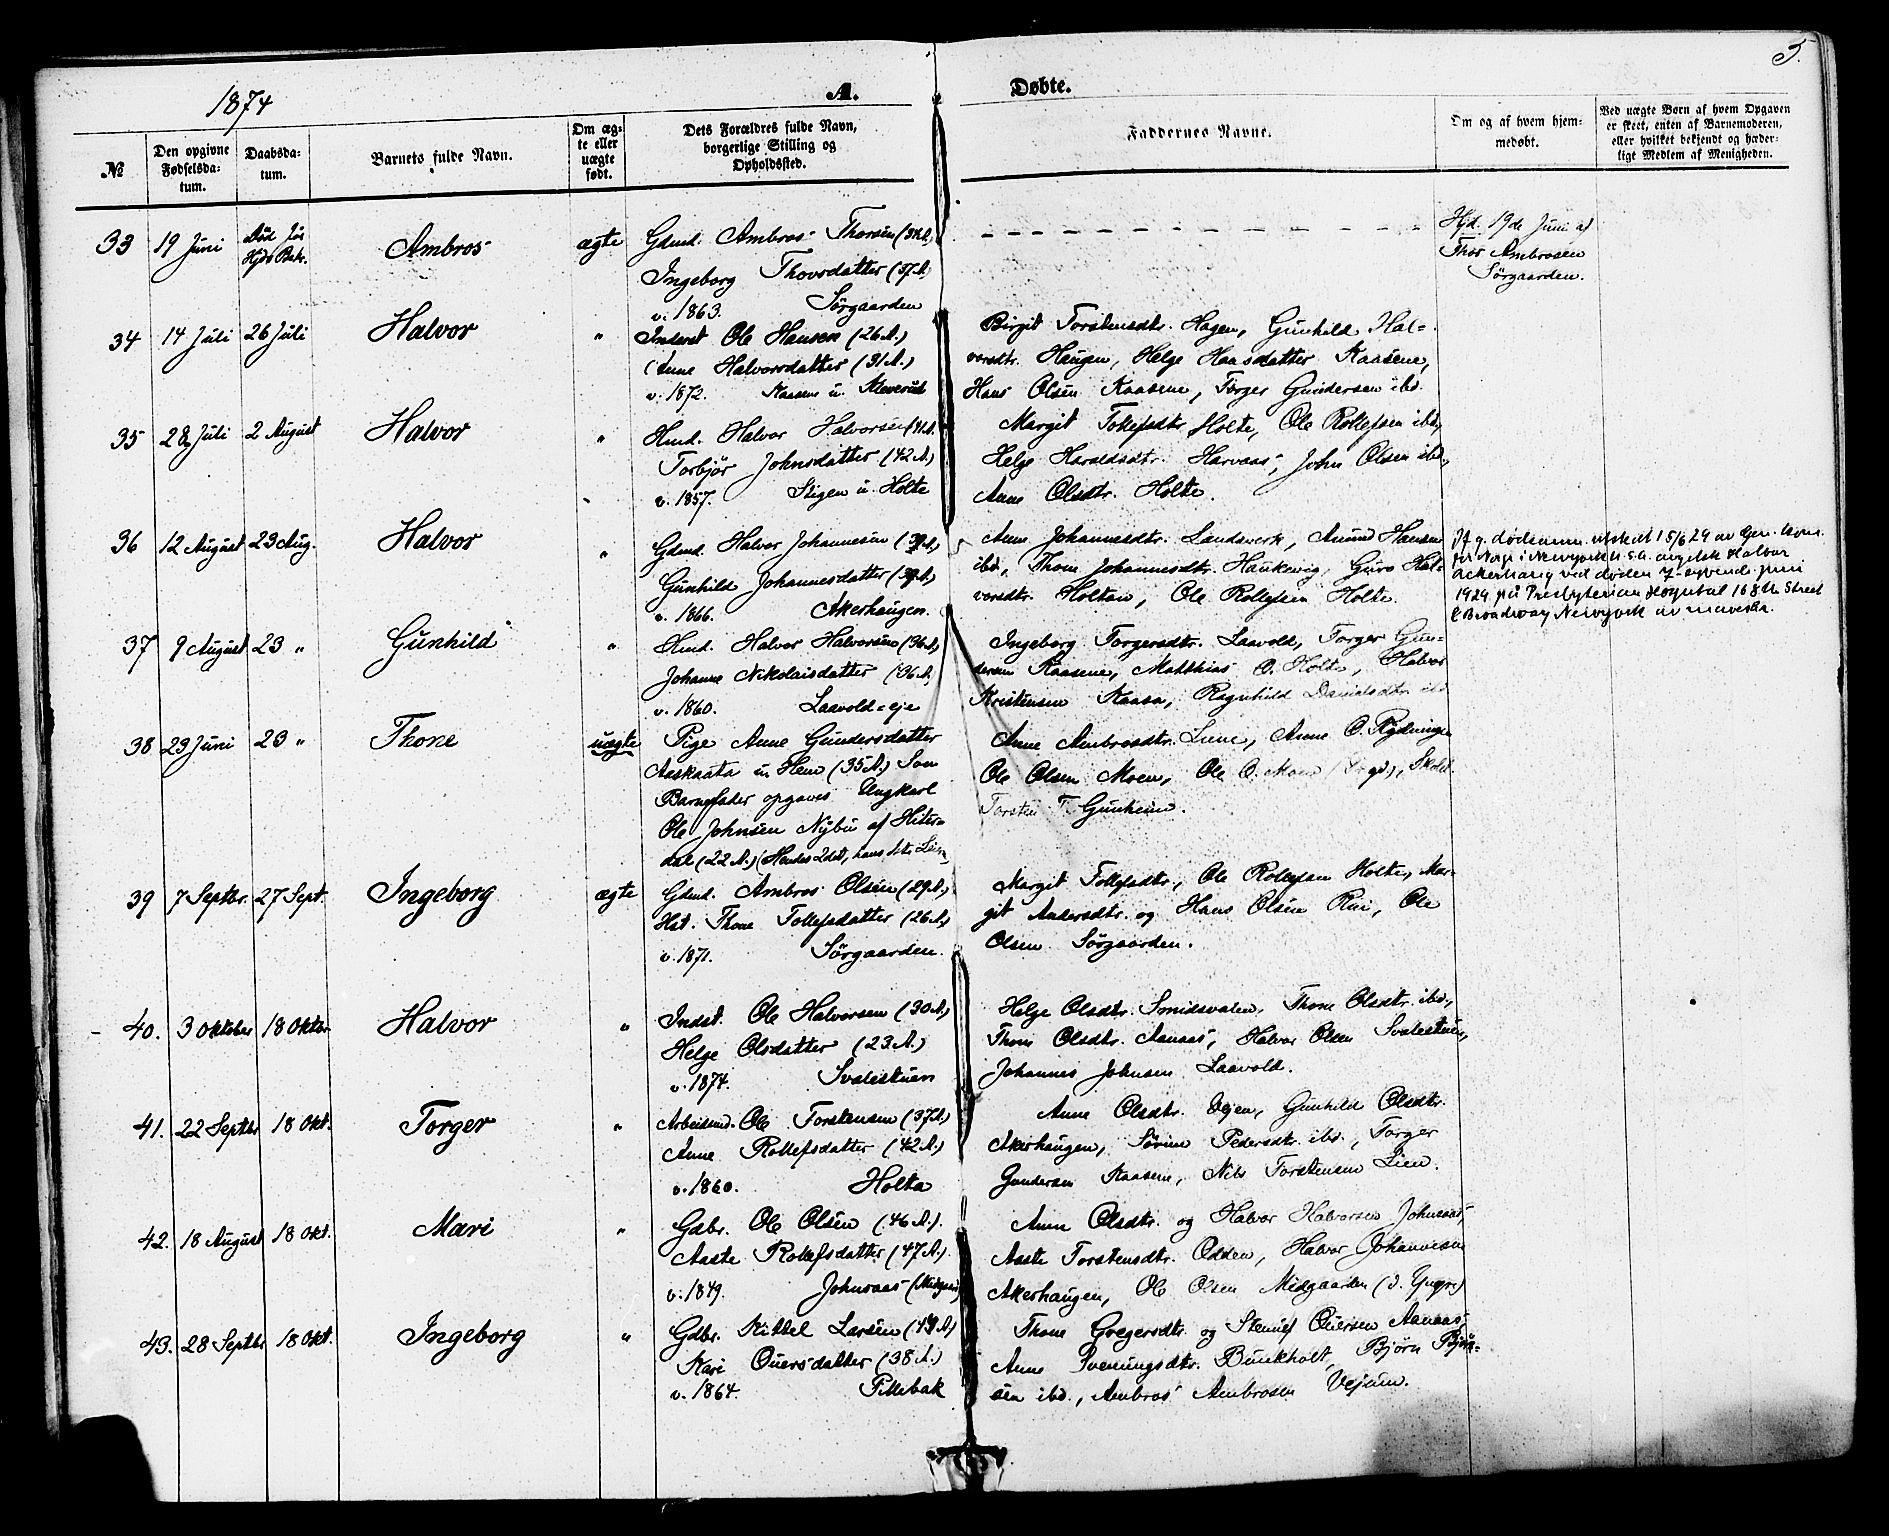 5.
1874
A. Døbte.
№
Den opgivne Fødselsdatum.
Daabsdatum.
Barnets fulde Navn.
Om ægte eller uægte født.
Dets Forældres fulde Navn, borgerlige Stilling og Opholdssted.
Faddernes Navne.
Om og af hvem hjemmedøbt.
Ved uægte Born af hvem Opgaven er skeet, enten af Barnemoderen, eller hvilket bekjendt og hæderligt Medlem af Menigheden.
33 19 Juni Ambros ægte Gdmd. Ambros Thorsen
Ingeborg Thovsdatter (37 A.)
v. 1863. Sørgaarden
Hjd. 19de Juni af
Thor Ambrosen
Sørgaarden.
34 14 Juli 26 Juli Halvor " Inderst Ole Hansen (26 A.)
Anne Halvorsdatter (31 A.)
v. 1872. Kaasene u.
Birgit Torstensdtr. Hagen, Gunhild Hal-
vorsdtr. Haugen, Helge Hansdatter Kaasene,
Hans Olsen Kaasene, Torger Gundersen ibd.
35 28 Juli 2 August Halvor " Hmd. Halvor Halvorsen (41 A.
Torbjør Johnsdatter (42 A.)
v. 1857. Stigen u. Holte
Margit Tollefsdtr. Holte, Ole Rollefsen ibd.,
Helge Haraldsdtr. Harvaas, John Olsen ibd.,
Anne Olsdtr. Holte.
36 12 August 23 Aug. Halvor " Gdmd. Halvor Johannesen
Gunhild Johannesdatter
v. 1866. Akerhaugen.
Anne Johannesdtr. Landsverk, Amund Hansen
ibd., Thone Johannesdtr. Haukevig, Guro Hal-
vorsdtr. Holtan, Ole Rollefsen Holte.
If g. dødsanm. utstedt 15/6 29 av Gen. kons.
for Norge i Newyork U.S.A. avgikk Halvor
Ackerhaug ved døden 7-syvende juni
1929 på Presbyterian Hospital 168th Street
& Broadway Newyork av
37 9 August 23 " Gunhild " Hmd. Halvor Halvorsen (36 A.)
Johanne Nikolaisdatter (36 A.)
v. 1860. Laavold-eje
Ingeborg Torgersdtr. Laavold, Torger Gun-
dersen Kaasene, Matthias O. Holte, Halvor
Kristensen Kaasa, Ragnhild Danielsdtr. ibd.
38 23 Juni 23 " Thone uægte Pige Anne Gundersdatter
Aaskaata u. Hem (35 A.) Som
Barnefader opgaves Ungkarl
Ole Johnsen Nybu af Hiter-
dal (22 A.) (Hendes 2det, hans
Anne Ambrosdtr. Liene, Anne O. Rydningen
Ole Olsen Moen, Ole O. Moen
Torsten T. Gunheim.
39 7 Septbr. 27 Sept. Ingeborg ægte Gdmd. Ambros Olsen (29 A.)
Hst. Thone Tollefsdatter (26 A.)
v. 1871. Sørgaarden.
Margit Tollefsdtr., Ole Rollefsen Holte, Mar-
git Andersdtr. og Hans Olsen Rui, Ole
Olsen Sørgaarden.
40. 3 Oktober 18 Oktbr. Halvor " Indst. Ole Halvorsen (30 A.)
Helge Olsdatter (23 A.)
v. 1874. Svalestuen
Helge Olsdtr. Smidsvalen, Thone Olsdtr. ibd.,
Thone Olsdtr. Aanaas, Halvor Olsen Svalestuen,
Johannes Johnsen Laavold.
41. 22 Septbr. 18 Okt. Torger " Arbeidsmd. Ole Torstensen (37 A.)
Anne Rollefsdatter (42 A.)
v. 1860. Holta
Anne Olsdtr. Vejen, Gunhild Olsdtr.
Akerhaugen, Sørine Pedersdtr. ibd., Torger
Gundersen Kaasene, Nils Torstensen Lien.
42. 18 August 18 Okt. Mari " Gdbr. Ole Olsen (46 A.).
Aaste Rollefsdatter (47 A.)
v. 1849. Johnsaas
Anne Olsdtr. og Halvor Halvorsen Johnsaas,
Aaste Torstensdtr. Odden, Halvor Johannesen
Akerhaugen, Ole Olsen Midgaarden (d. Yngre)
43. 28 Septbr. 18 Okt. Ingeborg " Gdbr. Kittel Larsen
Kari Ouersdatter (38 A.)
v. 1864. Pillebak
Thone Gregersdtr. og Stenulf Ouersen Aanaas,
Anne Sveinungsdtr. Bunkholt, Bjørn Bjørn-
sen ibd., Ambros Ambrosen Vejum.